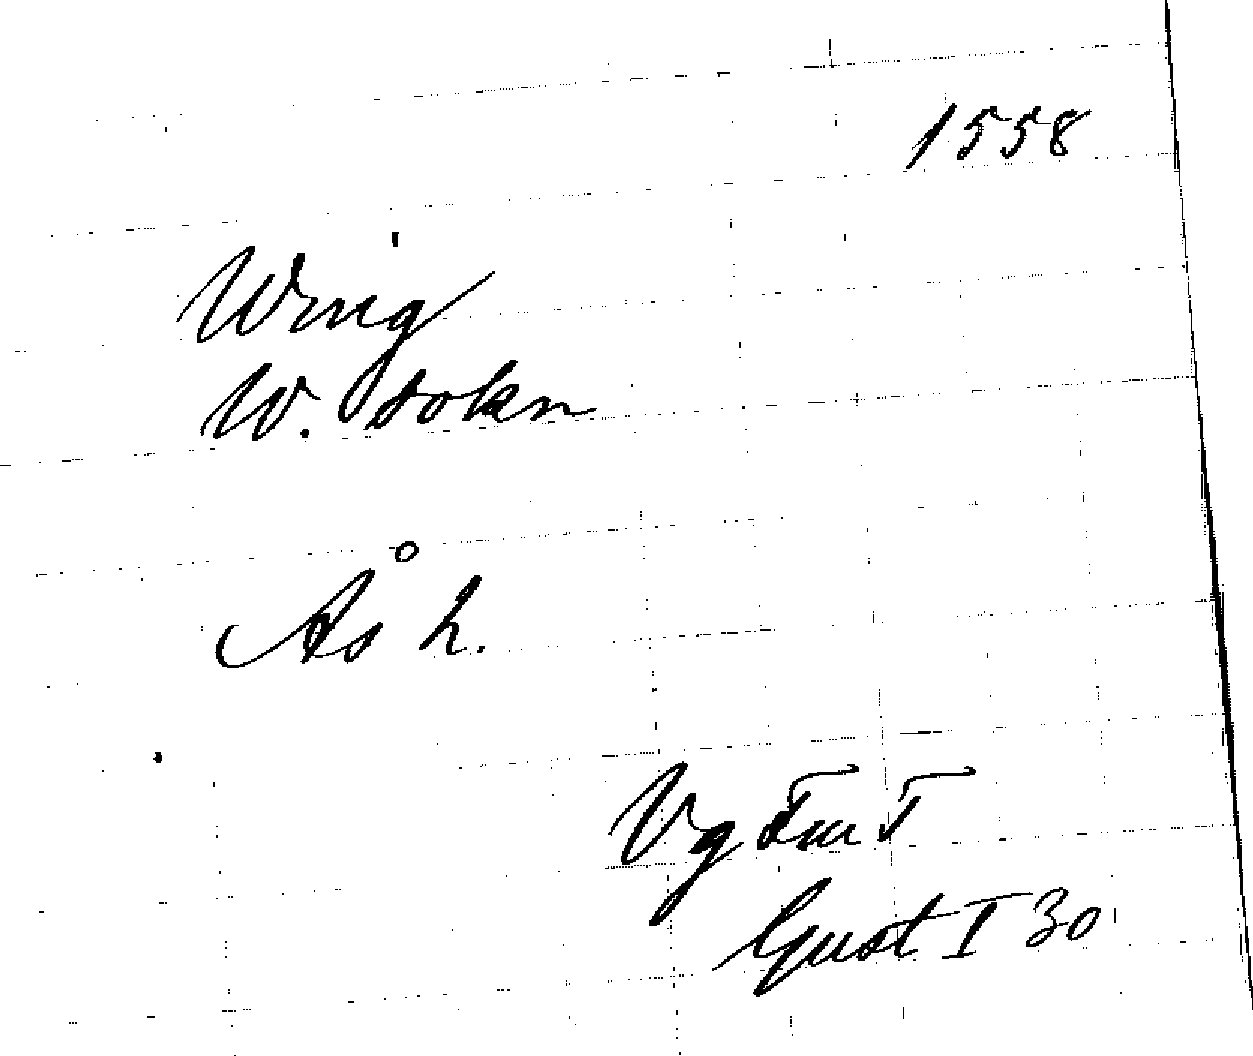 1558
Wing
W. sokn
Ås h.
Vg Tm T
Gust I 30